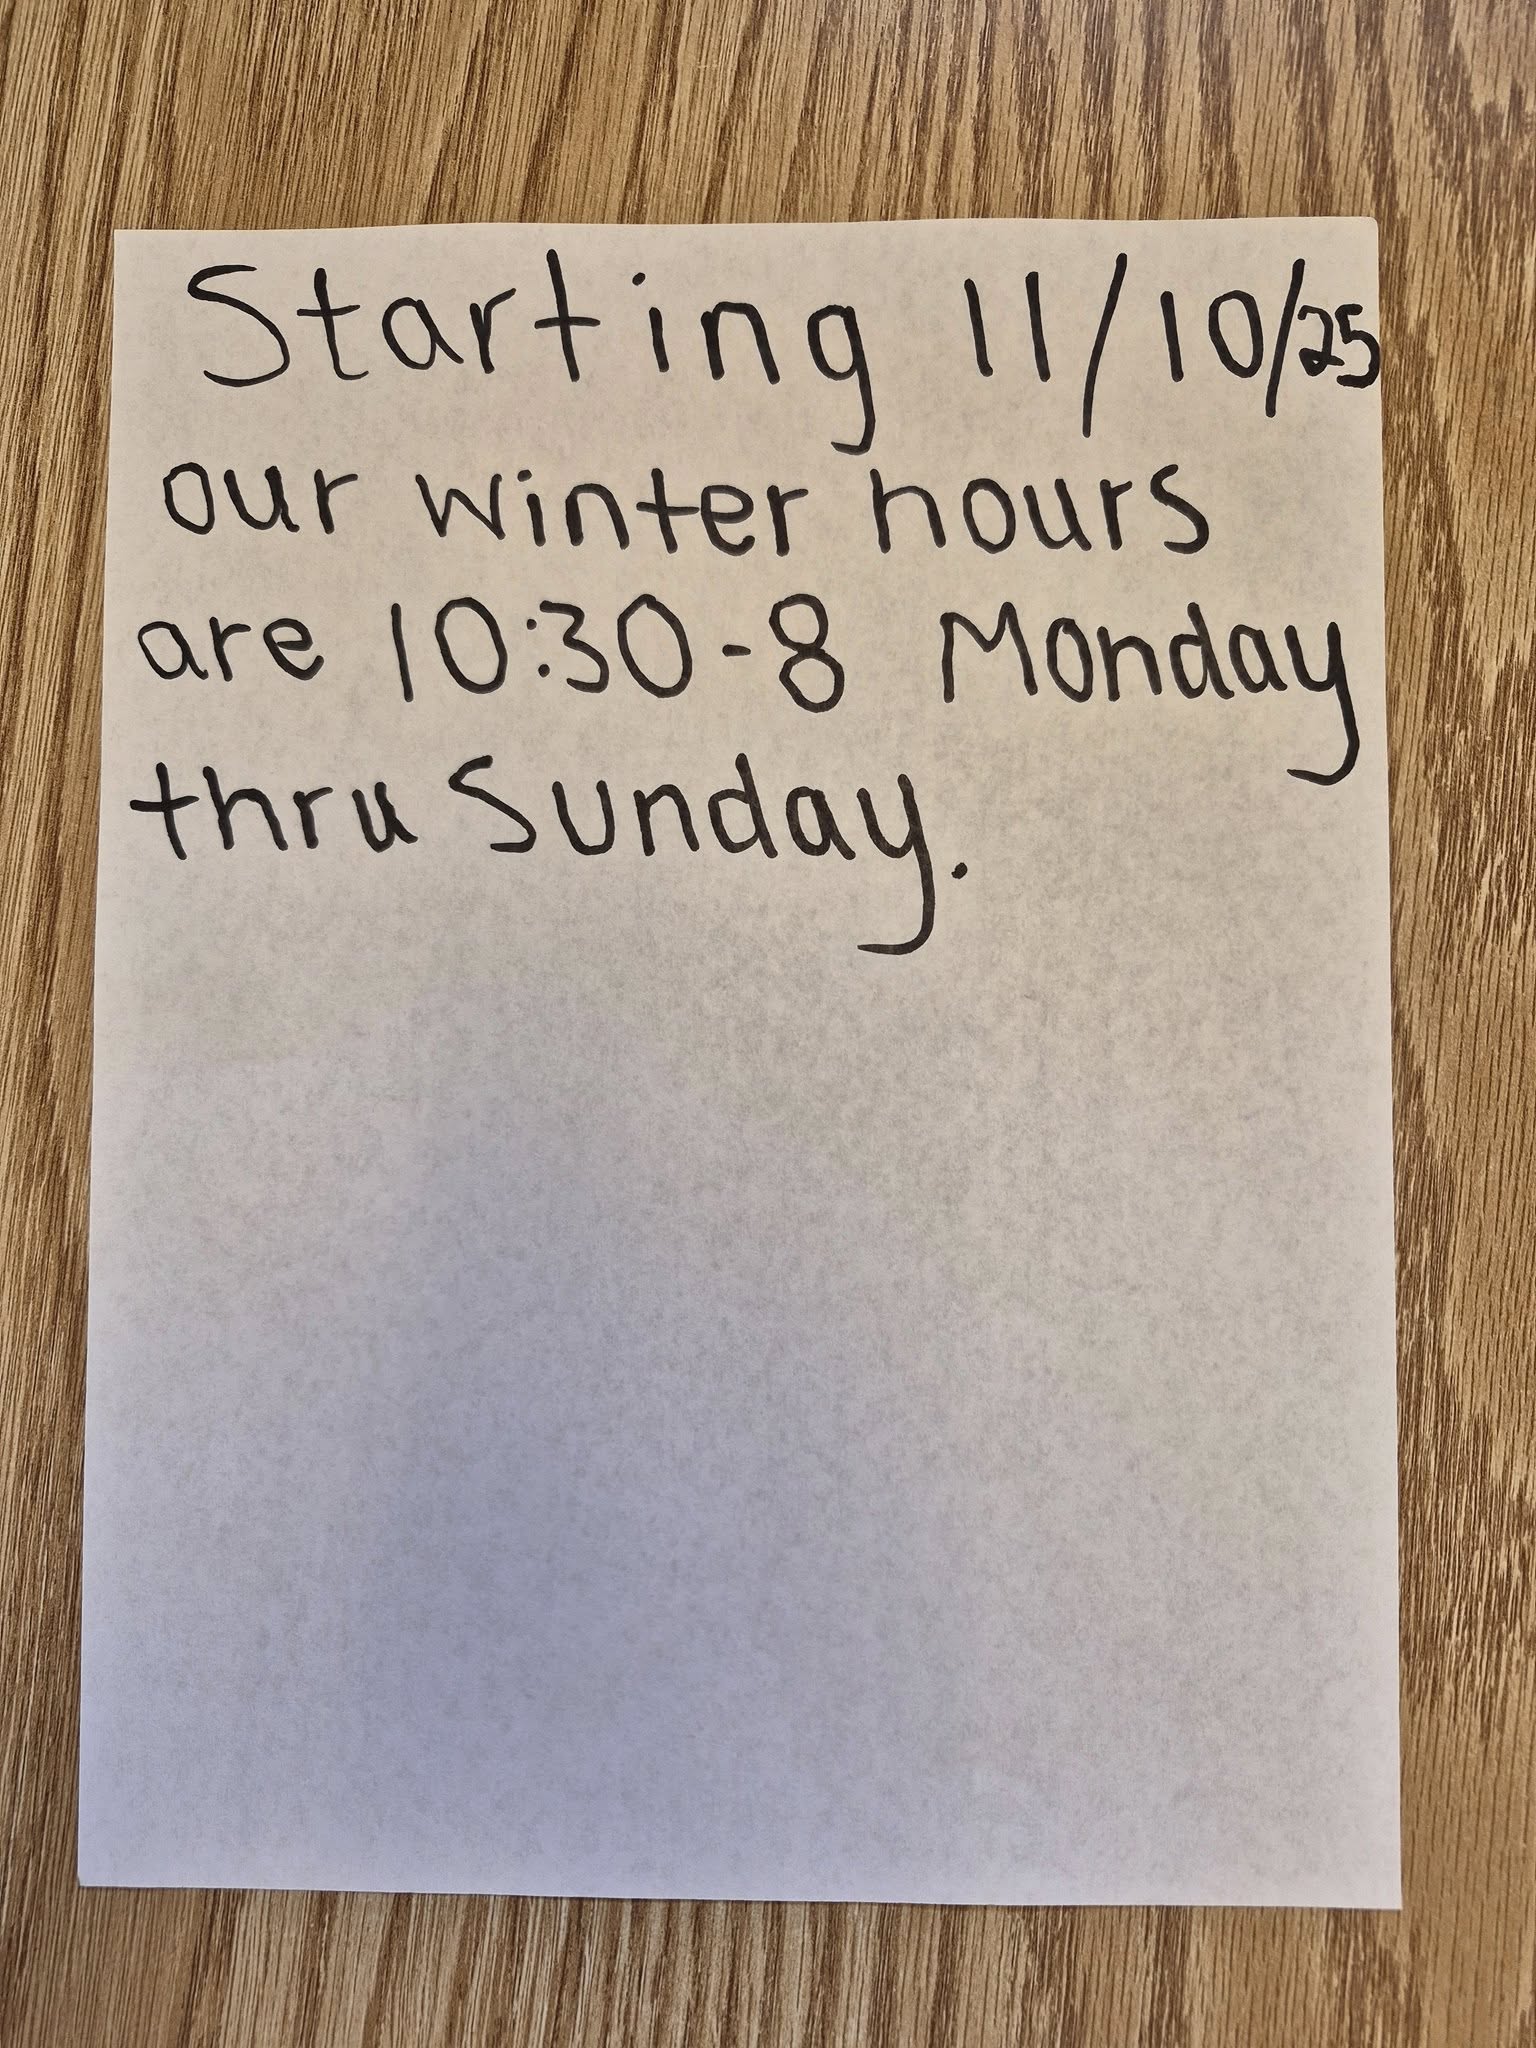 Starting 11/10/25
our winter hours
are 10:30-8 Monday
thru Sunday.